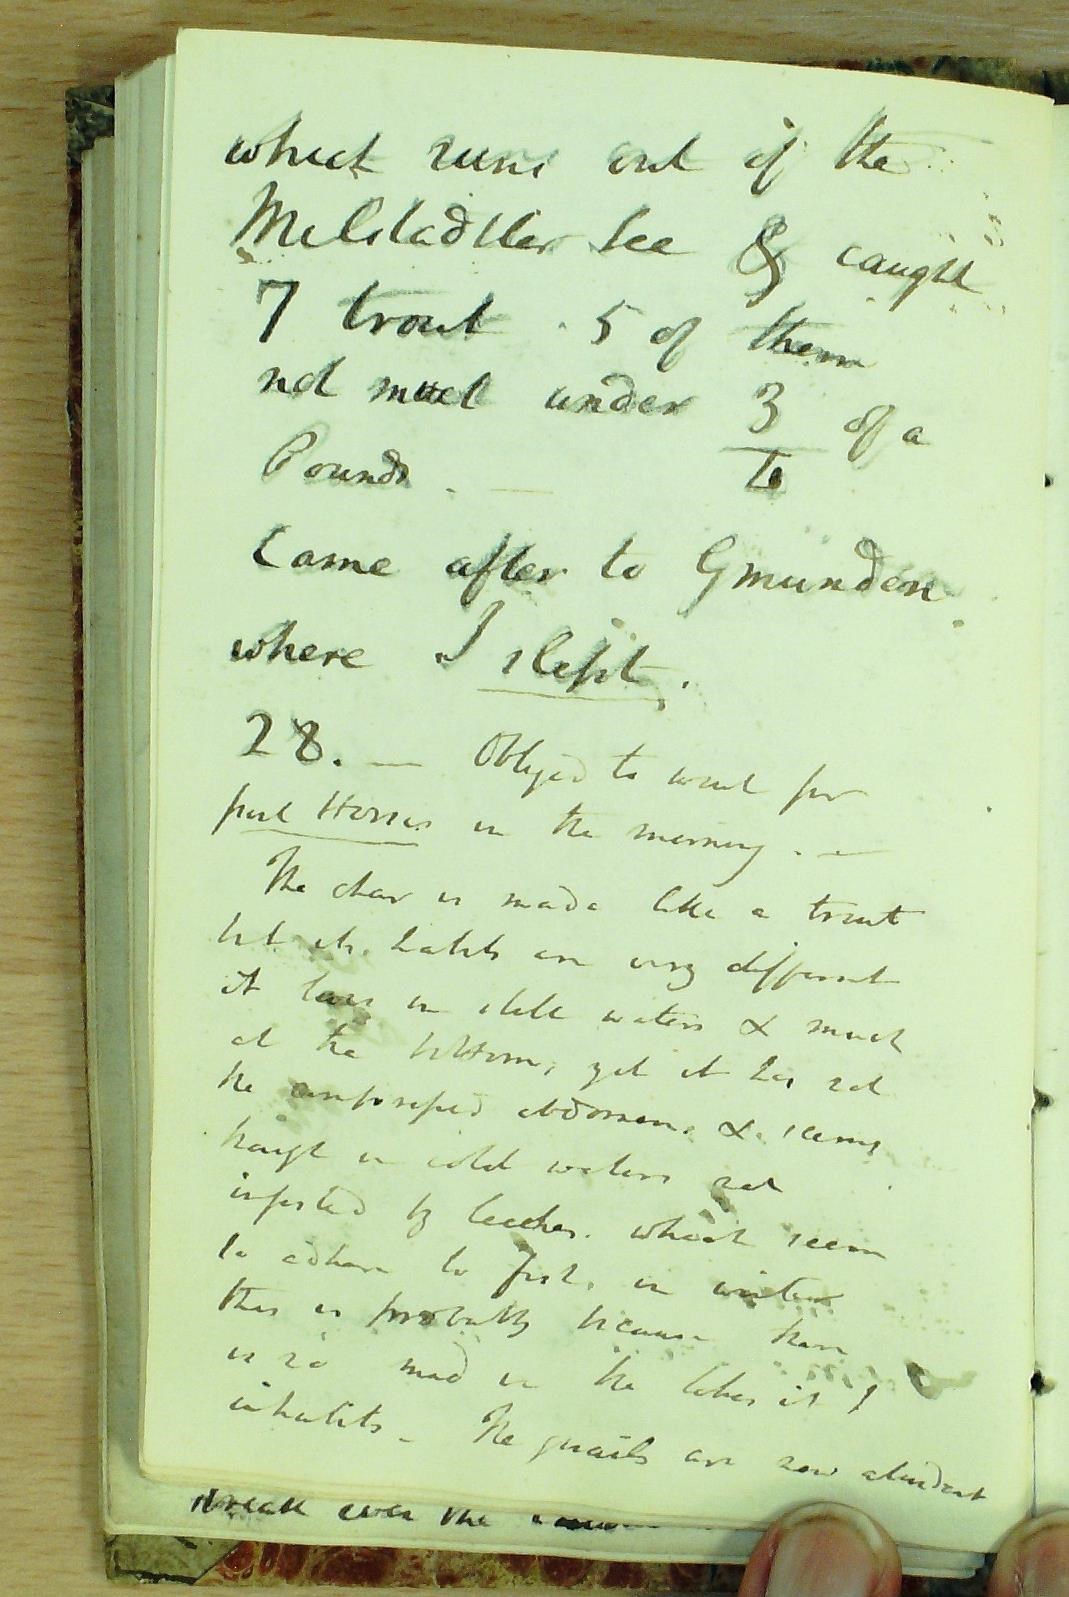 which runs out of the
Milstadtler See & caught
7 trout . 5 of them
not much under 3 of a
Pound . —
Came after to Gmunden
where I slept .
28. — Obliged to wait for
post Horses in the morning . —
The char is made like a trout
but its habits are very different
it lives in still waters & much
at the bottom, yet it has not
the abdomen, & seems
in cold waters not
infested by leeches. which seem
to adhere to fish, in winter
this is probably because there
is no mud in the lakes it
inhabits - The quails are now abundant
break over the